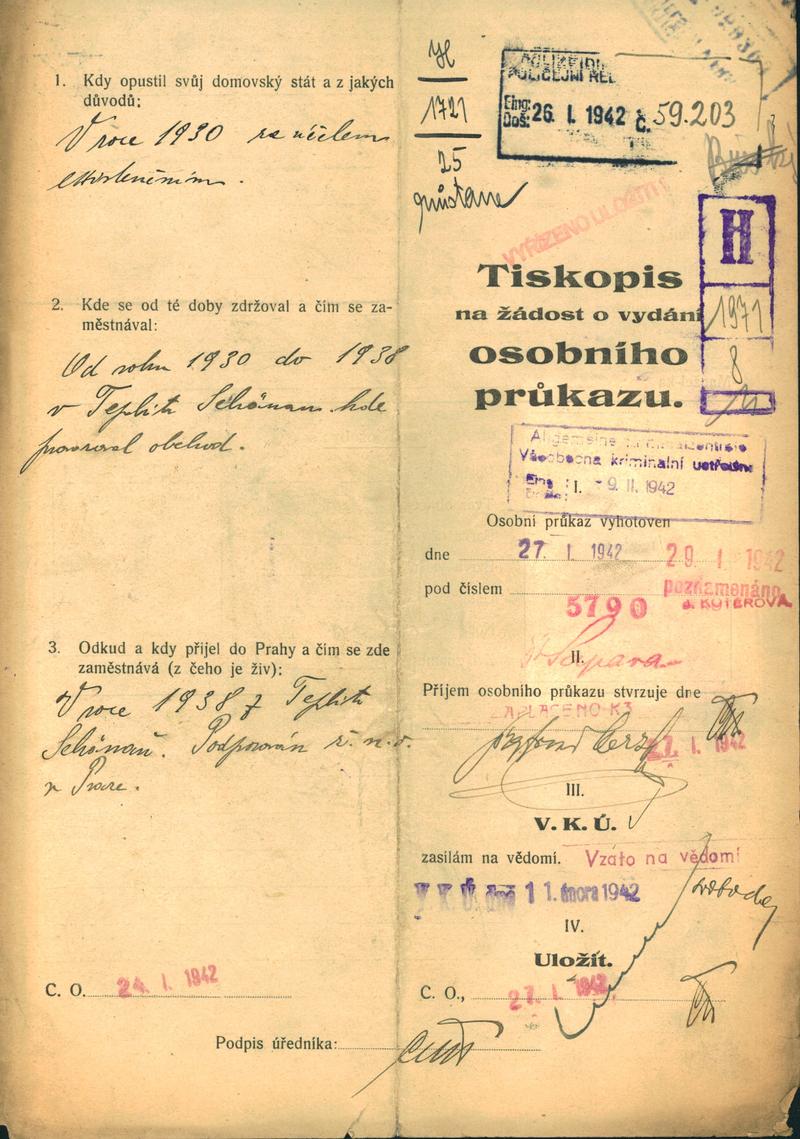 1. Kdy opustil svůj domovský stát a z jakých
důvodů:
V roce 1930 za účelem
2. Kde se od té doby zdržoval a čím se za-
městnával:
Od roku 1930 do 1938
v Teplitz Schönau kde
provozoval obchod.
3. Odkud a kdy přijel do Prahy a čím se zde
zaměstnává (z čeho je živ):
V roce 1938 z Teplitz
Schönau. Podporován ž. n. o.
v Praze.
C. O. 24. I. 1942
Podpis úředníka:
H
1721
25
Eing.
Doš: 26. I. 1942 č. 59.203
VYŘÍZENO ULOŽITI!
H
1971
8
Tiskopis
na žádost o vydání
osobního
průkazu.
Allgemeine Kriminalzentrale
Všeobecna kriminalní ustředna
9. II. 1942
Osobní průkaz vyhotoven
dne 27. I. 1942 29. I. 1942
pod číslem poznamenáno
5790 J. KUTEROVÁ
II.
Příjem osobního průkazu stvrzuje dne
ZAPLACENO K3
27. I. 1942
III.
V. K. Ú.
zasílám na vědomí. Vzato na vědomí
V K Ú dne 11. února 1942
IV.
Uložit.
C. O., 27. I. 1942